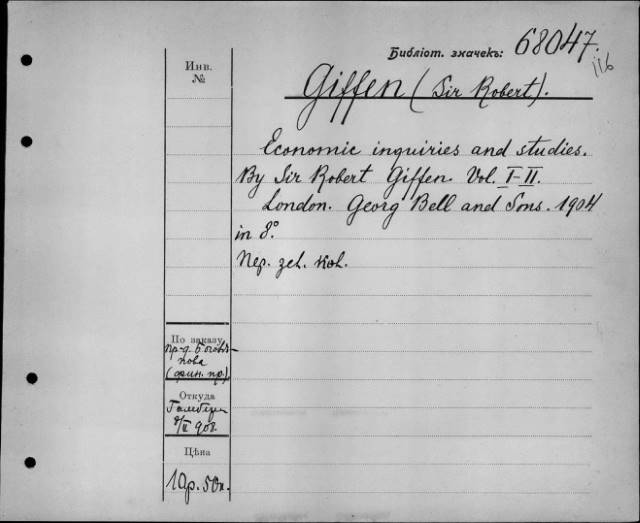 Библіот. значекъ: 68047.
116
Инв.
№
Giffen (Sir Robert).
Economic inquiries and studies.
By Sir Robert Giffen. Vol. I-II.
London. Georg Bell and Sons. 1904
in 8°.
Пер. zel. kol.
По заказу
пр-д.
(фин. пр.)
Откуда
8/II 908.
Цѣна
10р. 50к.